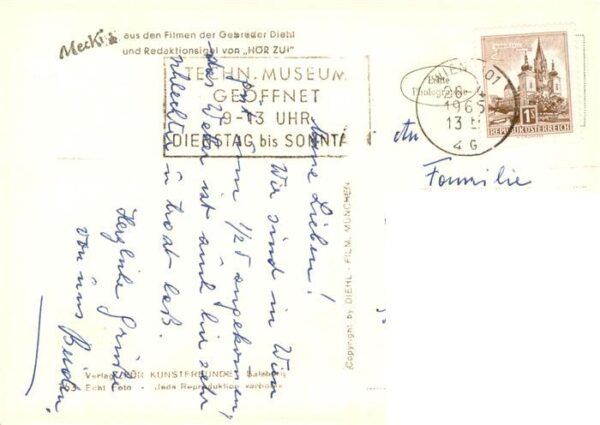 Mecki
aus den Filmen der Gebrüder Diehl
und Redaktionsigel von „HÖR ZU!"
TECHN. MUSEUM
GEÖFFNET
9-13 UHR
DIENSTAG bis SONNTA
WIEN 101
26.
1965
13
4 G
Echte
Photographie
1S
REPUBLIK ÖSTERREICH
An
Familie
Meine Lieben!
Wir sind in Wien
gut um 1/2 5 angekommen,
das Wetter ist auch hier sehr
schlecht u.
Herzliche Grüße
von uns Beiden.
(Copyright by DIEHL - FILM, MÜNCHEN
Verlag FÜR KUNSTFREUNDE, Salzburg
Echt Foto - Jede Reproduktion verboten